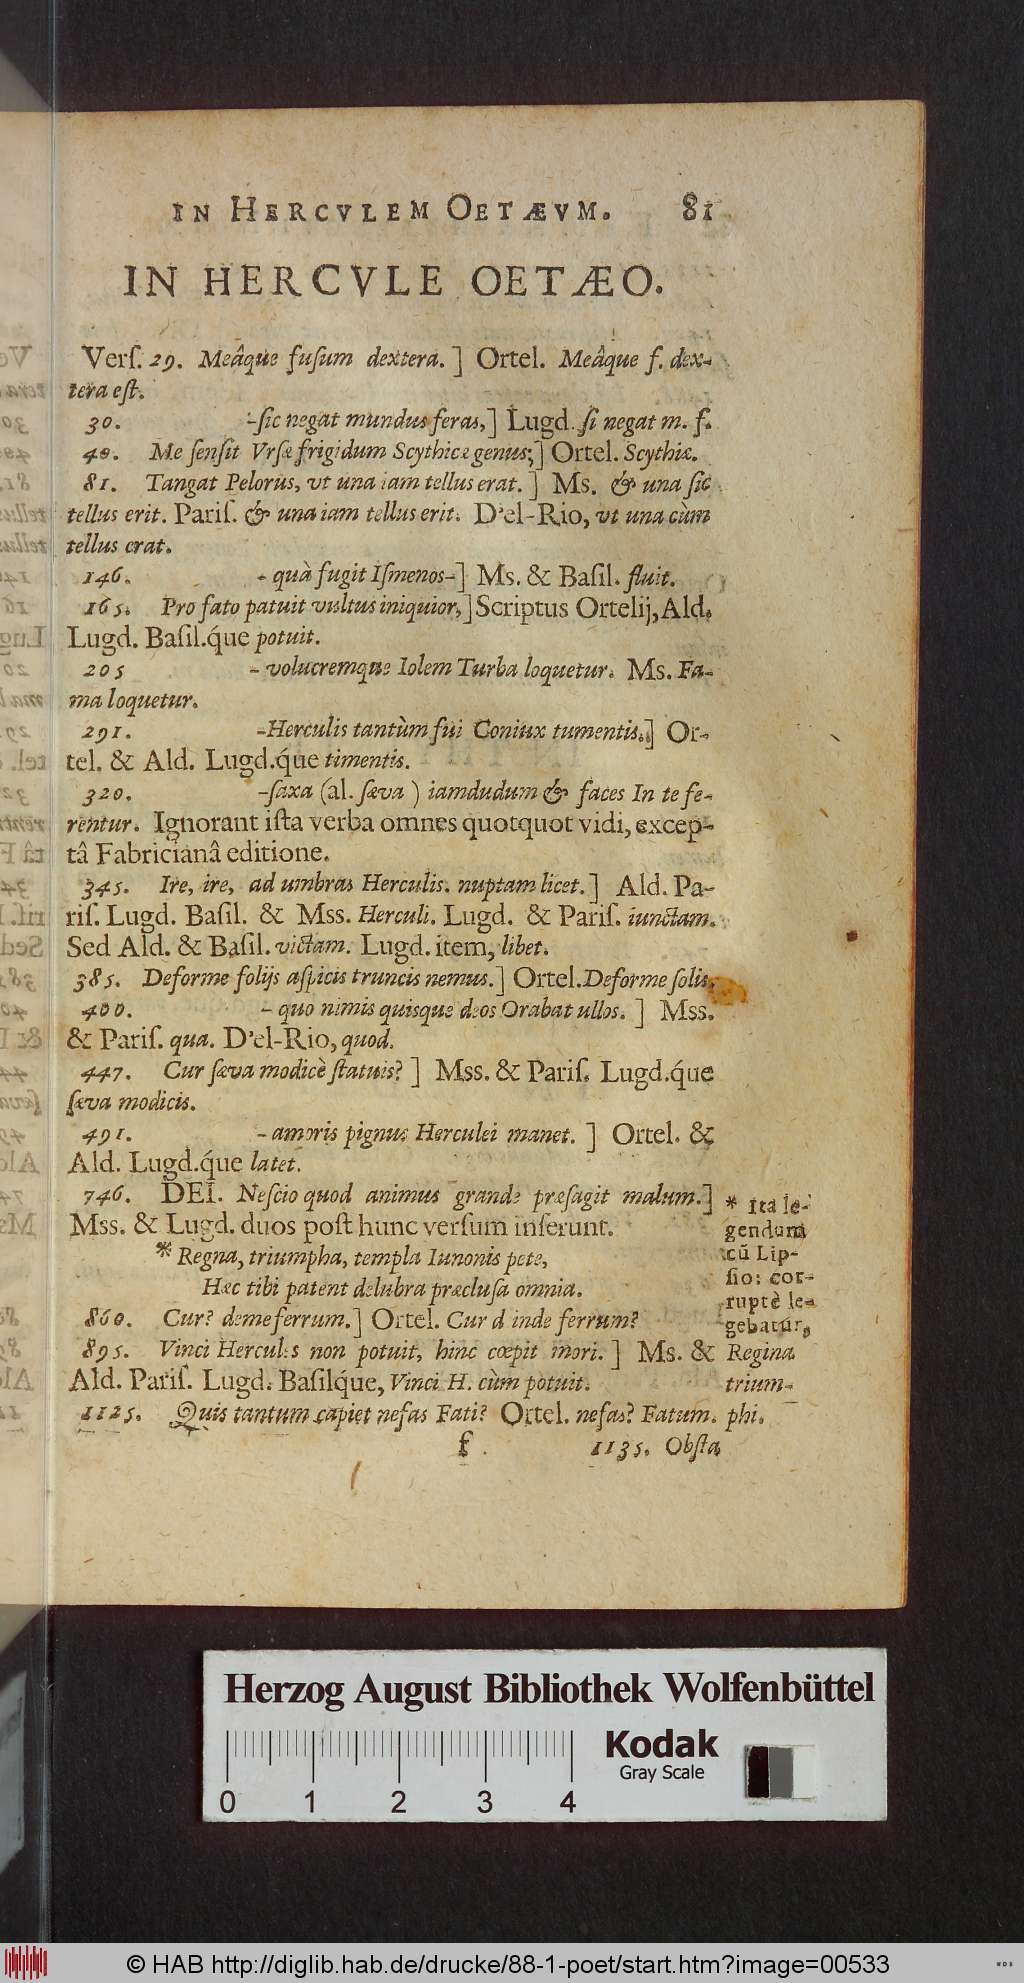 IN HERCVLEM OETÆVM. 81
IN HERCVLE OETÆO.
Verſ. 29. Meâque fuſum dextera. ] Ortel. Meâque f. dex-
tera eſt.
30. -ſic negat mundus feras,] Lugd. ſi negat m. f.
40. Me ſenſit Vrſæ frigidum Scythicæ genus;] Ortel. Scythiæ.
81. Tangat Pelorus, vt una iam tellus erat. ] Ms. & una ſic
tellus erit. Pariſ. & una iam tellus erit. D'el-Rio, vt una cùm
tellus erat.
146. - quà fugit Iſmenos-] Ms. & Baſil. fluit.
165. Pro fato patuit vultus iniquior,] Scriptus Ortelij, Ald.
Lugd. Baſil.q́ue potuit.
205 - volucremque Iolem Turba loquetur. Ms. Fa-
ma loquetur.
291. -Herculis tantùm fui Coniux tumentis.] Or-
tel. & Ald. Lugd.q́ue timentis.
320. -ſaxa (al. ſæva ) iamdudum & faces In te fe-
rentur. Ignorant iſta verba omnes quotquot vidi, excep-
tâ Fabricianâ editione.
345. Ire, ire, ad umbras Herculis. nuptam licet. ] Ald. Pa-
riſ. Lugd. Baſil. & Mss. Herculi. Lugd. & Pariſ. iunctam.
Sed Ald. & Baſil. victam. Lugd. item, libet.
385. Deforme folijs aſpicis truncis nemus. ] Ortel. Deforme ſolis.
400. - quo nimis quisque deos Orabat ullos. ] Mss.
& Pariſ. qua. D'el-Rio, quod.
447. Cur ſæva modicè ſtatuis? ] Mss. & Pariſ. Lugd.q́ue
ſæva modicis.
491. - amoris pignus Herculei manet. ] Ortel. &
Ald. Lugd.q́ue latet.
746. DEI. Neſcio quod animus grande præſagit malum.]
Mss. & Lugd. duos poſt hunc verſum inſerunt.
* Regna, triumpha, templa Iunonis pete,
Hæc tibi patent delubra præcluſa omnia.
860. Cur? deme ferrum. ] Ortel. Cur d inde ferrum?
895. Vinci Hercules non potuit, hinc cœpit mori. ] Ms. &
Ald. Pariſ. Lugd. Baſilq́ue, Vinci H. cùm potuit.
1125. Quis tantum capiet nefas Fati? Ortel. nefas? Fatum.
* Ita le-
gendum
cũ Lip-
ſio: cor-
ruptè le-
gebatur,
Regina
trium-
phi.
f 1135. Obſta
Herzog August Bibliothek Wolfenbüttel
Kodak
Gray Scale
0 1 2 3 4
© HAB http://diglib.hab.de/drucke/88-1-poet/start.htm?image=00533